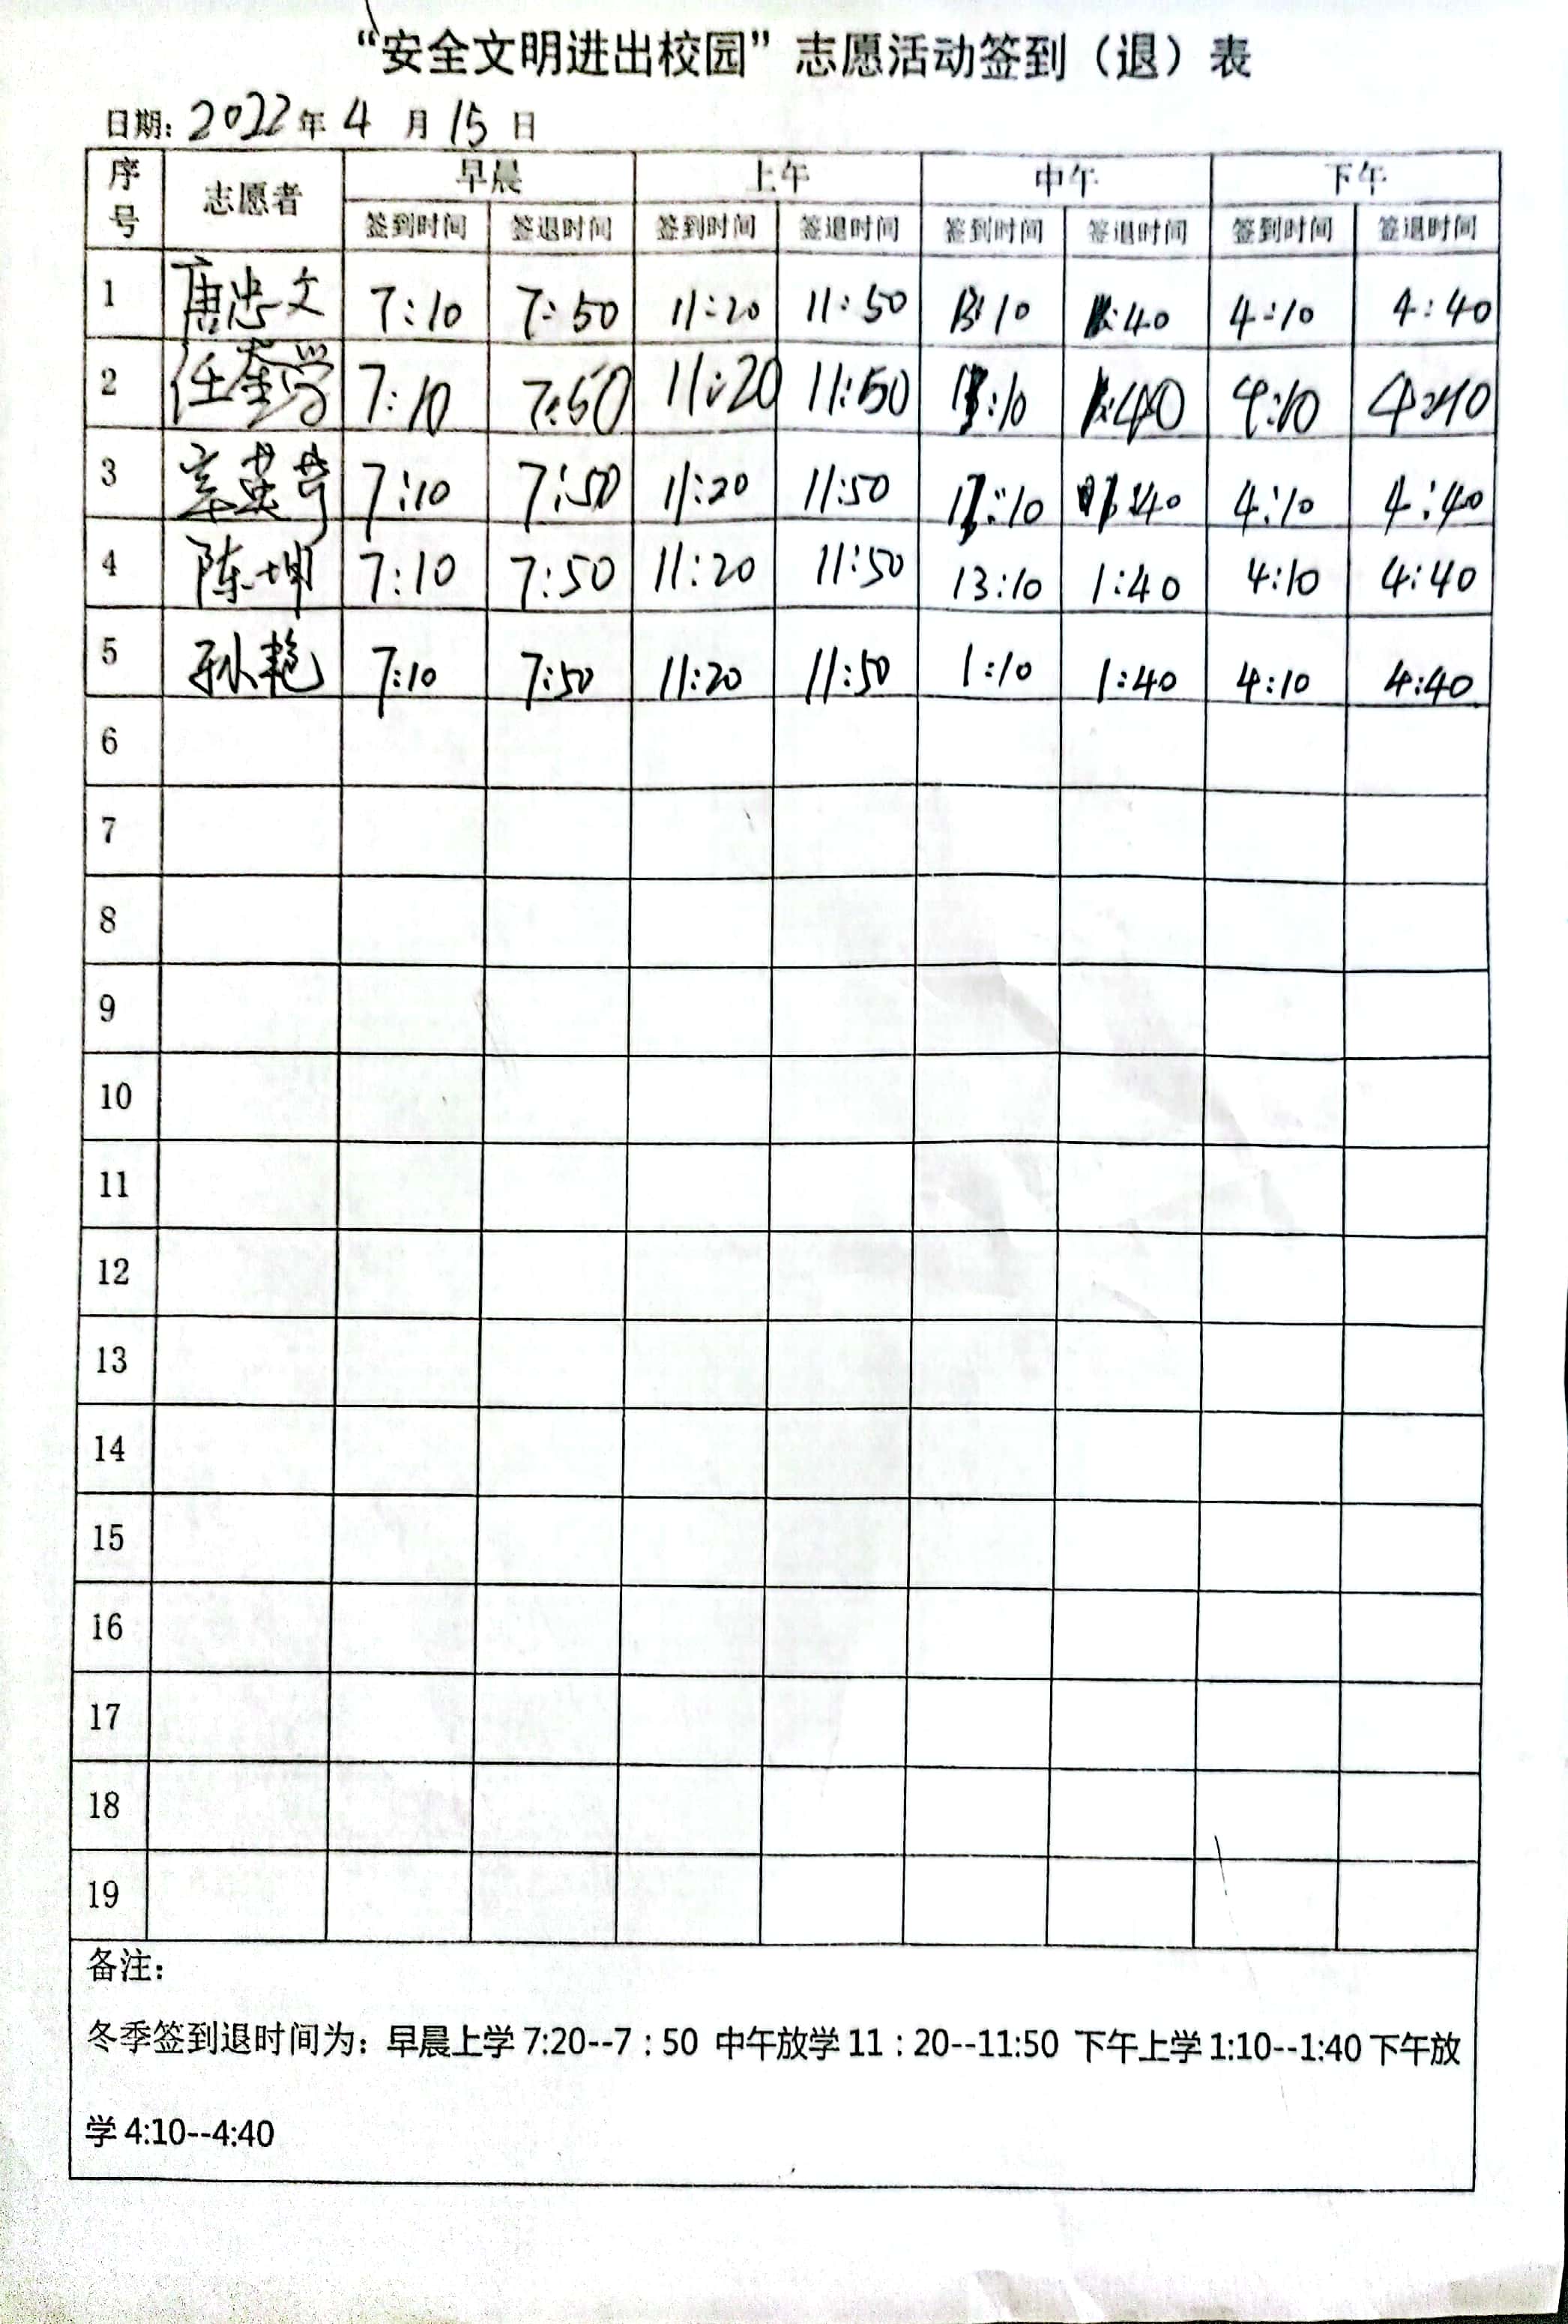 “安全文明进出校园”志愿活动签到（退）表
日期: 2022年 4 月 15 日
序号 志愿者 早晨 上午 中午 下午
签到时间 签退时间 签到时间 签退时间 签到时间 签退时间 签到时间 签退时间
1 唐忠文 7:10 7:50 11:20 11:50 13:10 1:40 4:10 4:40
2 任 7:10 7:50 11:20 11:50 :10 :40 4:10 4:40
3 英 7:10 7:50 11:20 11:50 :10 :40 4:10 4:40
4 陈坤 7:10 7:50 11:20 11:50 13:10 1:40 4:10 4:40
5 孙艳 7:10 7:50 11:20 11:50 1:10 1:40 4:10 4:40
6
7
8
9
10
11
12
13
14
15
16
17
18
19
备注:
冬季签到退时间为: 早晨上学 7:20--7：50 中午放学 11：20--11:50 下午上学 1:10--1:40 下午放
学 4:10--4:40